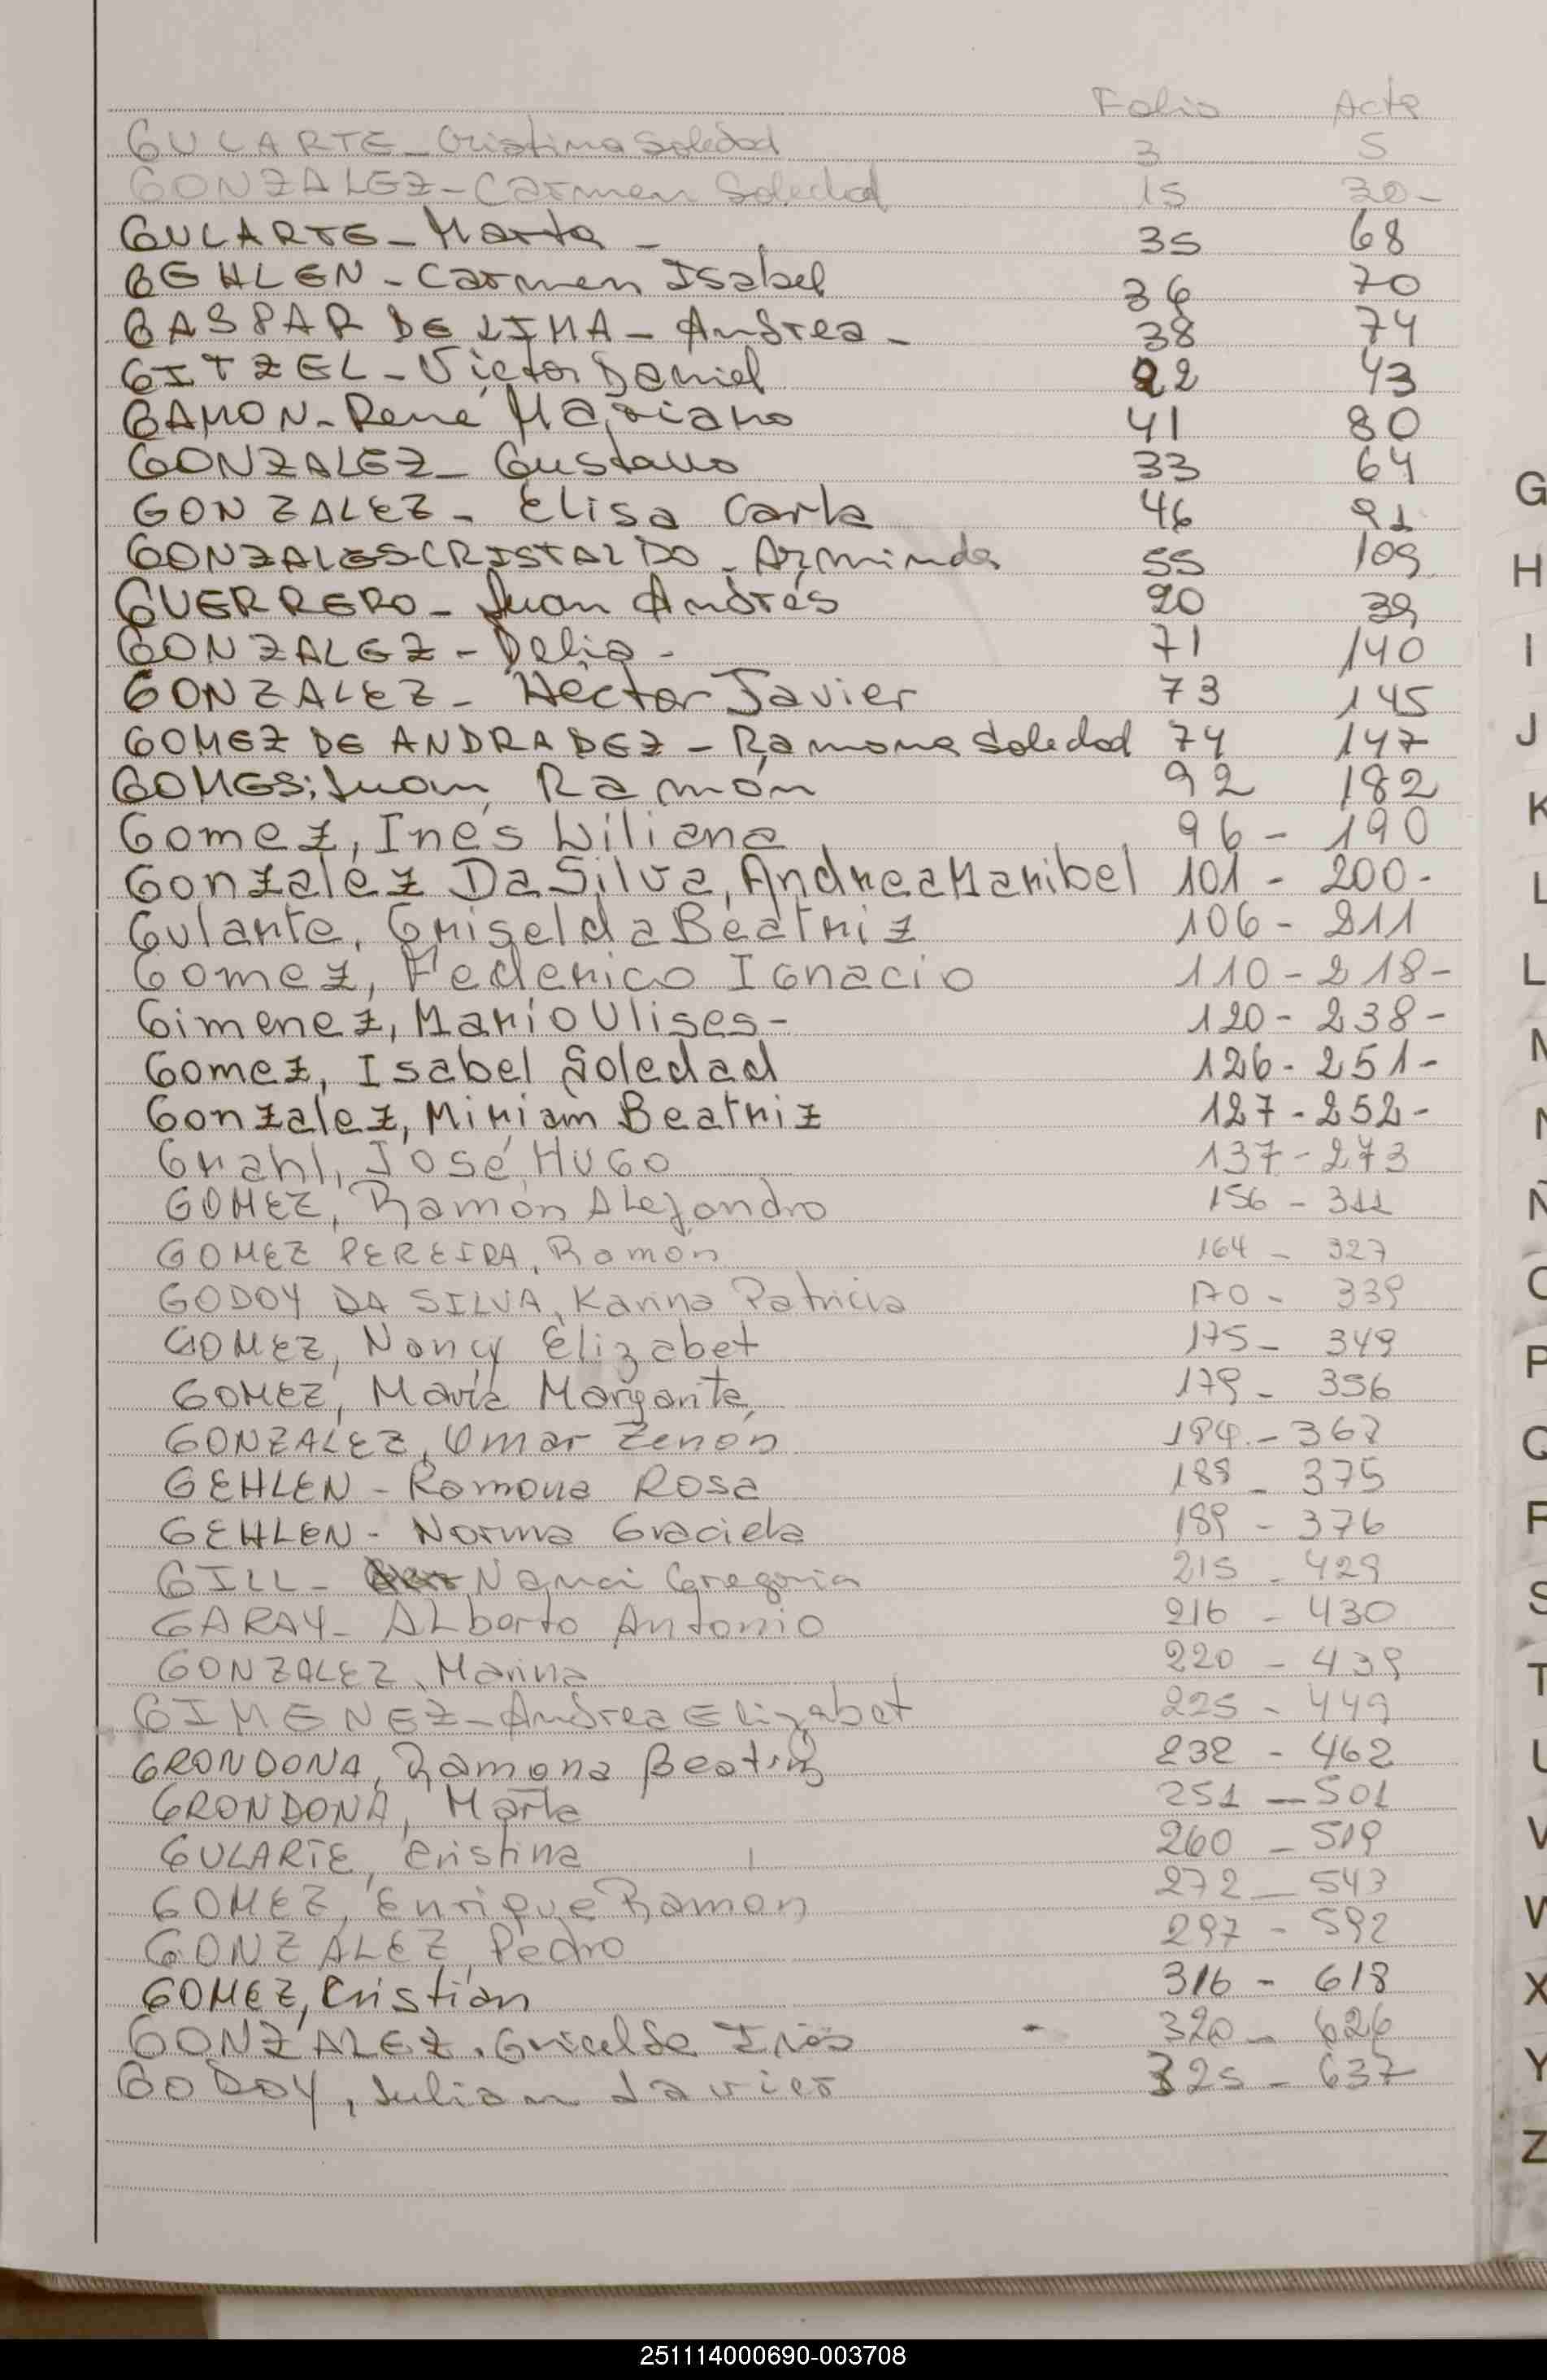 Folio Acta
GULARTE - Cristina Soledad 3 5
GONZALEZ - Carmen Soledad 15 30 -
GULARTE - Marta - 35 68
GEHLEN - Carmen Isabel 36 70
GASPAR DE LIMA - Andrea - 38 74
GITZEL - Victor Daniel 22 43
GAMON - René Mariano 41 80
GONZALEZ - Gustavo 33 64
GONZALEZ - Elisa Carla 46 91
GONZALES CRISTALDO - Arminda 55 109
GUERRERO - Juan Andrés 20 39
GONZALEZ - Delia - 71 140
GONZALEZ - Hector Javier 73 145
GOMEZ DE ANDRADEZ - Ramona Soledad 74 147
GOMES; Juan Ramón 92 182
Gomez, Inés Liliana 96 - 190
Gonzalez Da Silva, Andrea Maribel 101 - 200 -
Gularte, Griselda Beatriz 106 - 211
Gomez, Federico Ignacio 110 - 218 -
Gimenez, Mario Ulises - 120 - 238 -
Gomez, Isabel Soledad 126 - 251 -
Gonzalez, Miriam Beatriz 127 - 252 -
Grahl, José Hugo 137 - 273
GOMEZ, Ramón Alejandro 156 - 311
GOMEZ PEREIRA, Ramón 164 - 327
GODOY DA SILVA, Karina Patricia 170 - 339
GOMEZ, Nancy Elizabet 175 - 349
GOMEZ, María Margarita 179 - 356
GONZALEZ, Omar Zenón 184 - 367
GEHLEN - Ramona Rosa 188 - 375
GEHLEN - Norma Graciela 189 - 376
GILL - Nanci Gregoria 215 - 429
GARAY - Alberto Antonio 216 - 430
GONZALEZ, Marina 220 - 439
GIMENEZ - Andrea Elizabet 225 - 449
GRONDONA, Ramona Beatriz 232 - 462
GRONDONA, Marta 251 - 501
GULARTE, Cristina 260 - 519
GOMEZ, Enrique Ramon 272 - 543
GONZALEZ, Pedro 297 - 592
GOMEZ, Cristian 316 - 618
GONZALEZ, Gricelda Iris 320 - 626
GODOY, Julian Javier 325 - 637
G
H
I
J
K
L
L
M
N
Ñ
O
P
Q
R
S
T
U
V
W
X
Y
Z
251114000690-003708